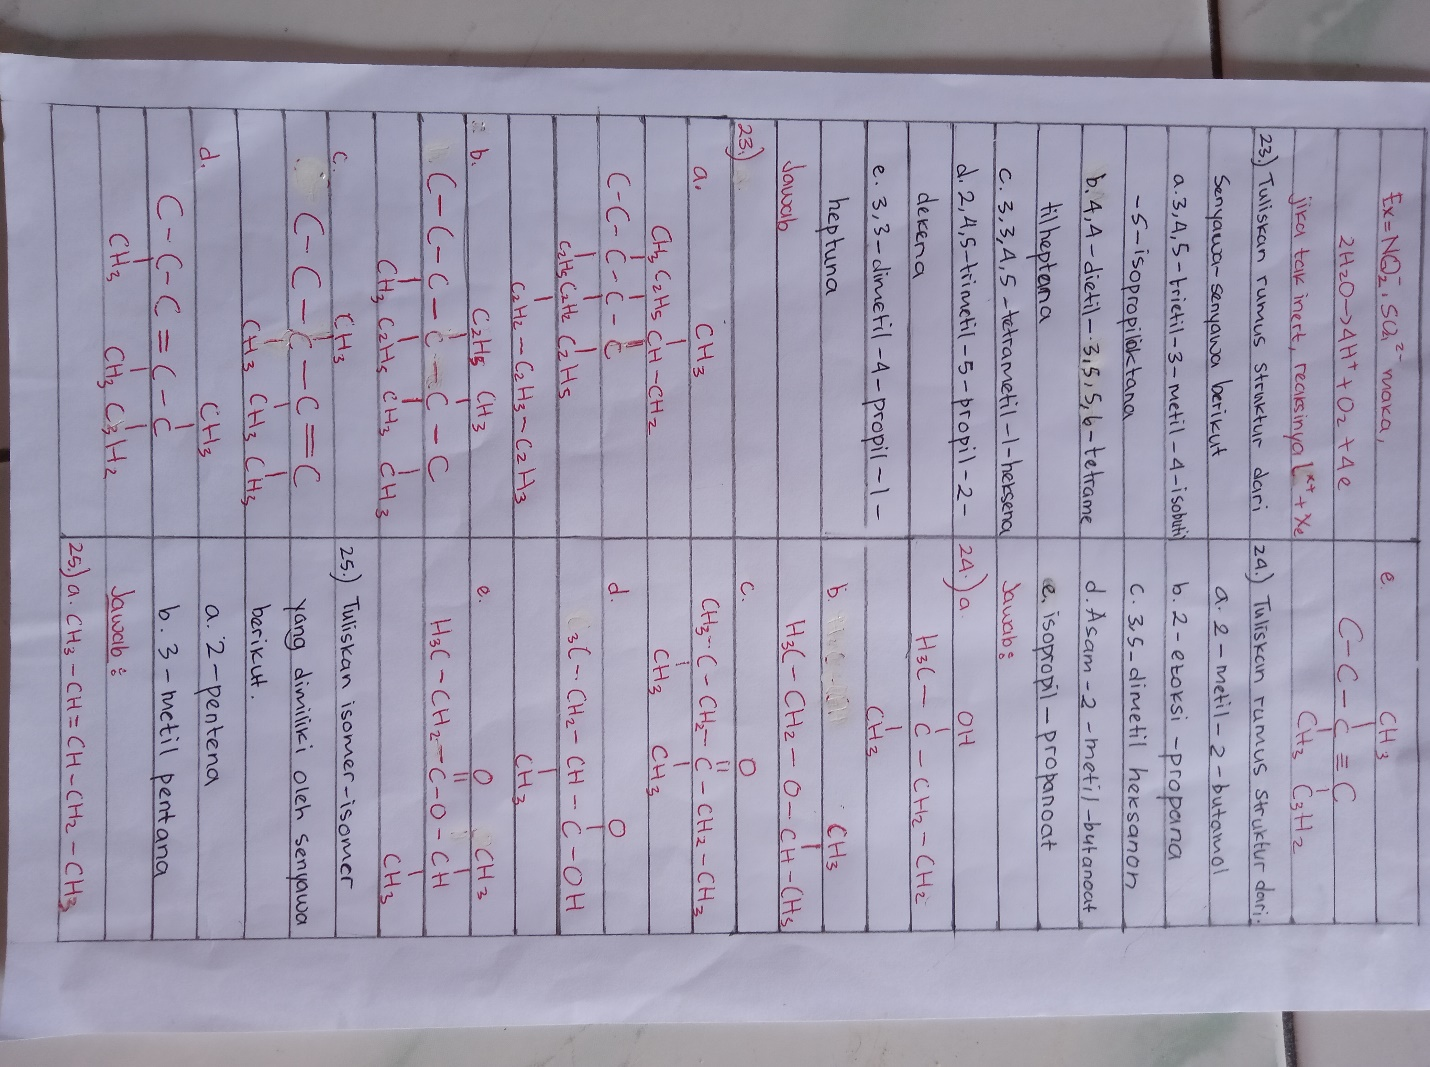 Ex=NO3⁻, SO4²⁻ maka,
2H2O→4H⁺+O2+4e
jika tak inert, reaksinya L ˣ⁺+Xe
23.) Tuliskan rumus struktur dari
Senyawa-senyawa berikut
a. 3,4,5-trietil-3-metil-4-isobutil
-5-isopropiloktana
b. 4,4-dietil-3,5,5,6-tetrame
tilheptana
c. 3,3,4,5-tetrametil-1-heksena
d. 2,4,5-trimetil-5-propil-2-
dekena
e. 3,3-dimetil-4-propil-1-
heptuna
Jawab
23.)
a. CH3
CH3 C2H5 CH-CH2
C-C-C-C-C
C2H5 C2H2 C2H5
C2H2-C2H3-C2H3
b. C2H5 CH3
C-C-C-C-C-C
CH3 C2H5 CH3 CH3
c. CH3
C-C-C-C=C
CH3 CH3 CH3
d. CH3
C-C-C=C-C
CH3 CH3 C3H2
e. CH3
C-C-C≡C
CH3 C3H2
24.) Tuliskan rumus struktur dari:
a. 2-metil-2-butanol
b. 2-etoksi-propana
c. 3.5-dimetil heksanon
d. Asam-2-metil-butanoat
e. isopropil-propanoat
Jawab:
24.) a. OH
H3C-C-CH2-CH2
CH3
b. CH3
H3C-CH2-O-CH-CH3
c. O
CH3-C-CH2-C-CH2-CH3
CH3 CH3
d. O
3C-CH2-CH-C-OH
CH3
e. O CH3
H3C-CH2-C-O-CH
CH3
25.) Tuliskan isomer-isomer
yang dimiliki oleh senyawa
berikut.
a. 2-pentena
b. 3-metil pentana
Jawab:
25.) a. CH3-CH=CH-CH2-CH3